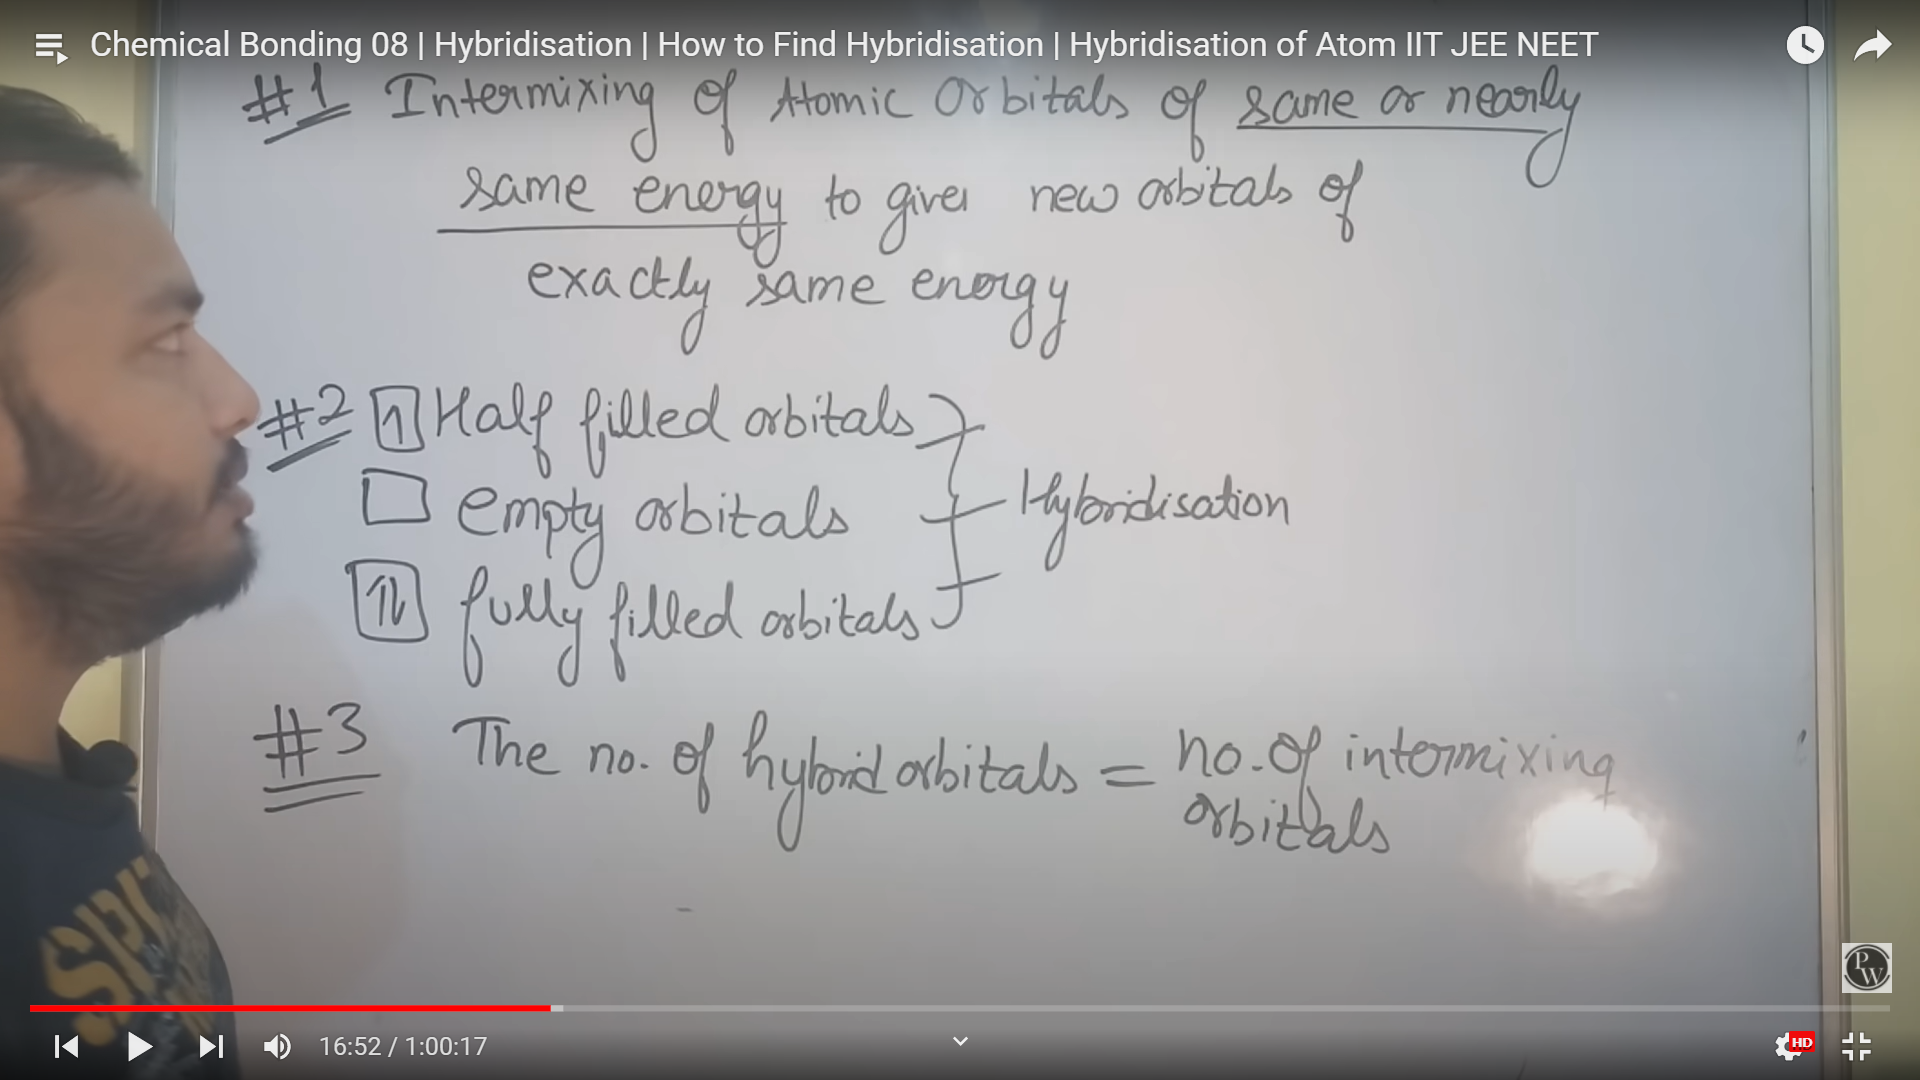 Chemical Bonding 08 | Hybridisation | How to Find Hybridisation | Hybridisation of Atom IIT JEE NEET
#1 Intermixing of Atomic Orbitals of same or nearly
same energy to gives new orbitals of
exactly same energy
#2 1 Half filled orbitals
empty orbitals
Hybridisation
1L fully filled orbitals
#3 The no. of hybrid orbitals = no. of intermixing
orbitals
SPI
PW
16:52 / 1:00:17
HD